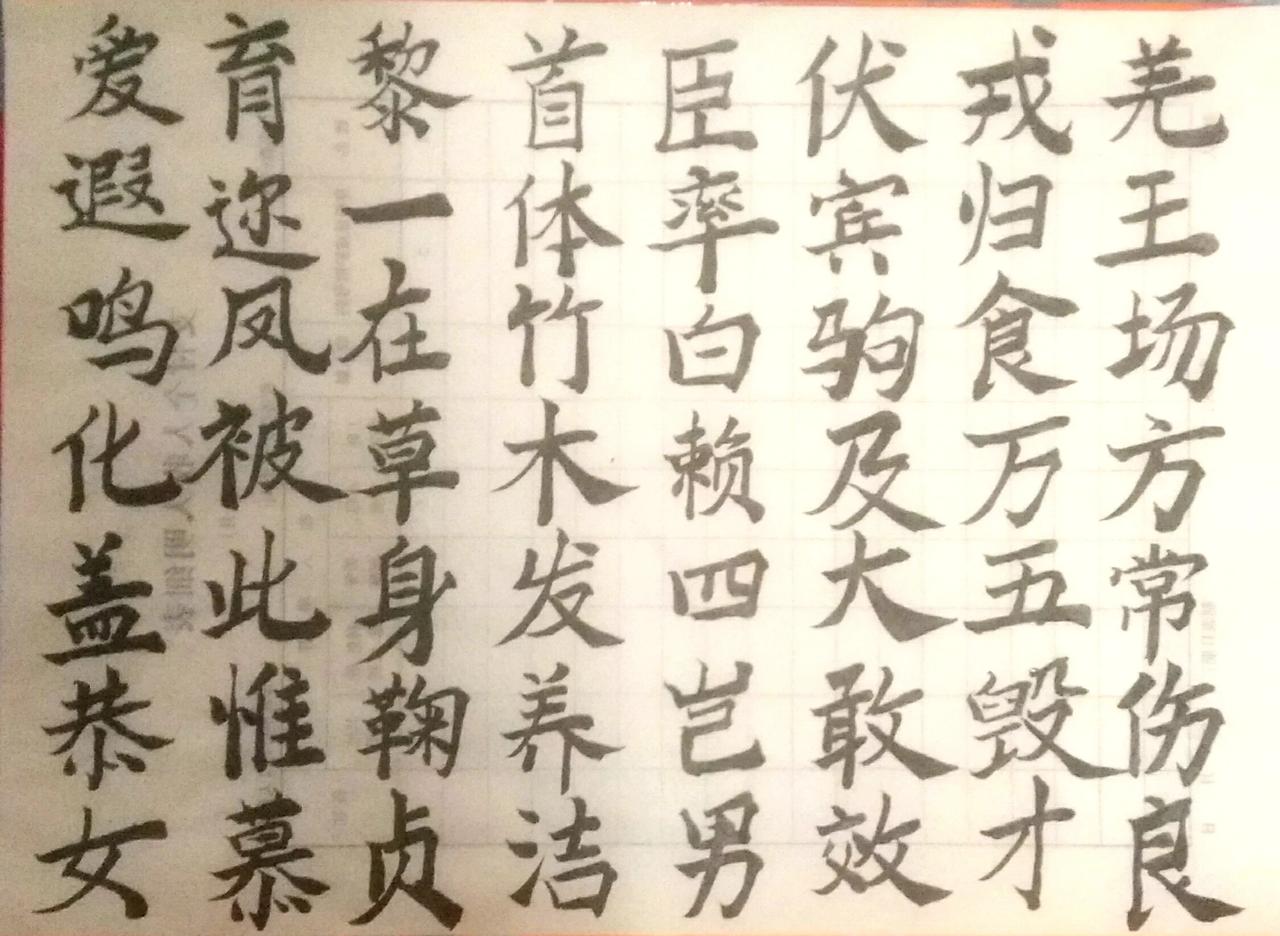 爱育黎首臣伏戎羌
遐迩一体率宾归王
鸣凤在竹白驹食场
化被草木赖及万方
盖此身发四大五常
恭惟鞠养岂敢毁伤
女慕贞洁男效才良